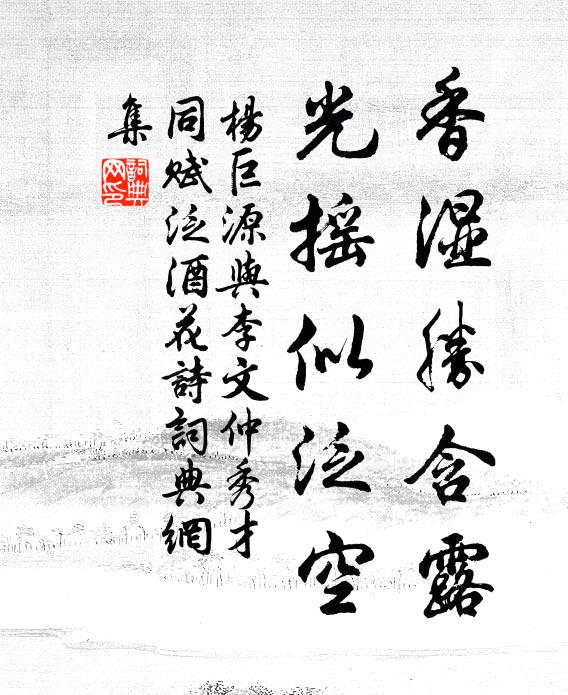 香濕勝含露
光搖似泛空
楊巨源與李文仲秀才
同賦泛酒花詩詞典網
集
詞典
网印